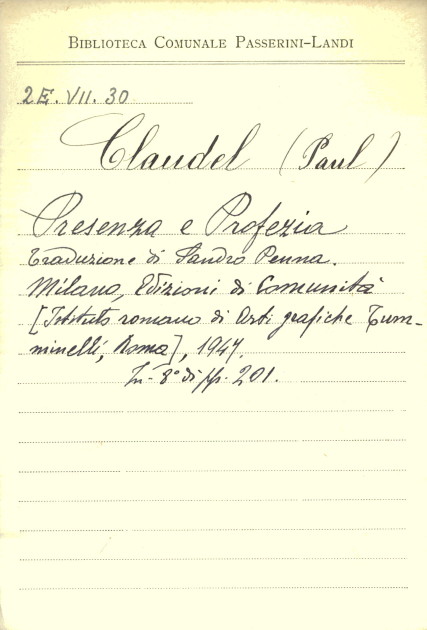 BIBLIOTECA COMUNALE PASSERINI-LANDI
2E. VII. 30
Claudel (Paul)
Presenza e Profezia
Traduzione di Sandro Penna.
Milano, Edizioni di Comunità
[Istituto romano di Arti grafiche Tum-
minelli, Roma], 1947.
In-8° di pp. 201.